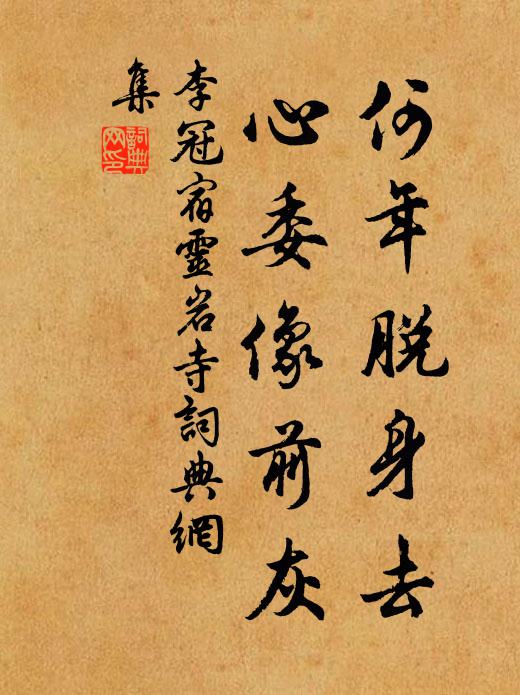 何年脱身去
心委像前灰
李冠宿靈岩寺詞典網
集
詞典網印